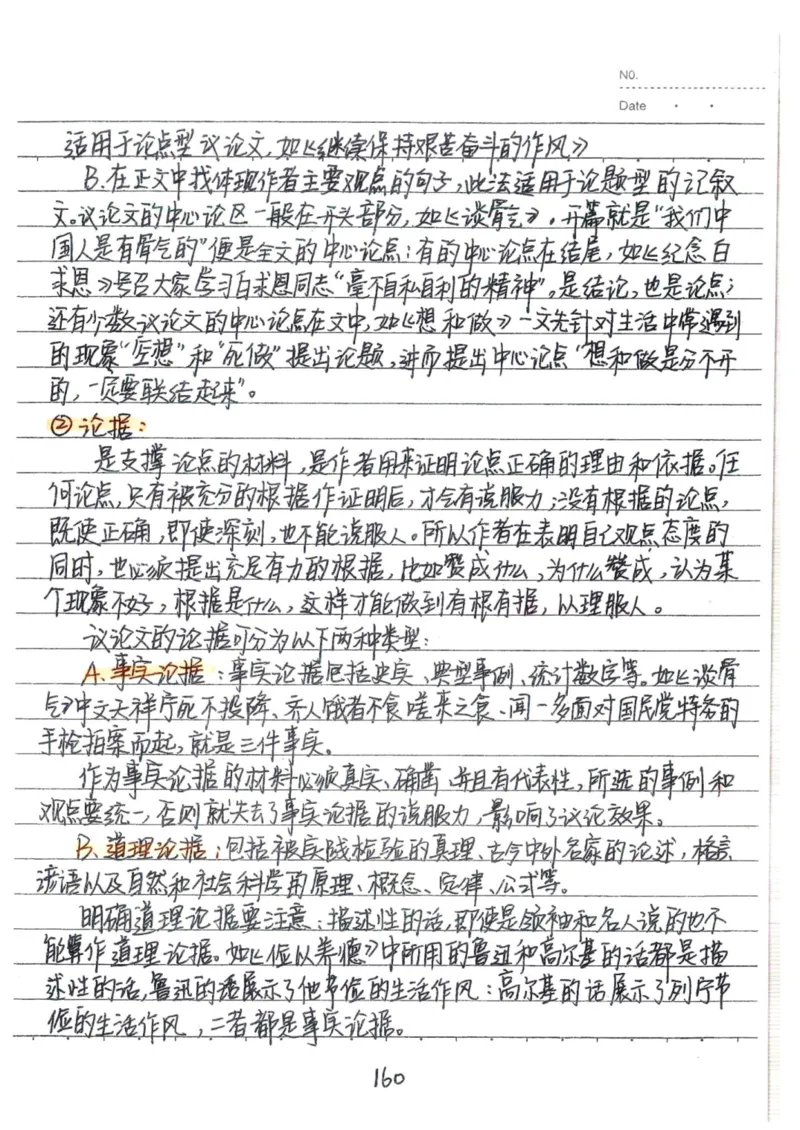 NO.
Date
适用于论点型议论文,如《继续保持艰苦奋斗的作风》
B.在正文中找体现作者主要观点的句子,此法适用于论题型的记叙
文。议论文的中心论区一般在开头部分,如《谈骨气》,开篇就是“我们中
国人是有骨气的”便是全文的中心论点;有的中心论点在结尾,如《纪念白
求恩》号召大家学习白求恩同志“毫不自私自利的精神”。是结论,也是论点;
还有少数议论文的中心论点在文中,如《想和做》一文先针对生活中常遇到
的现象“空想”和“死做”提出论题,进而提出中心论点“想和做是分不开
的,一定要联结起来”。
②论据:
是支撑论点的材料,是作者用来证明论点正确的理由和依据。任
何论点,只有被充分的根据作证明后,才会有说服力;没有根据的论点,
既使正确,即使深刻,也不能说服人。所以作者在表明自己观点态度的
同时,也必须提出充足有力的根据,比如赞成什么,为什么赞成,认为某
个现象不好,根据是什么,这样才能做到有根有据,以理服人。
议论文的论据可分为以下两种类型:
A.事实论据:事实论据包括史实、典型事例、统计数字等。如《谈骨
气》中文天祥宁死不投降、齐人饿者不食嗟来之食、闻一多面对国民党特务的
手枪拍案而起,就是三件事实。
作为事实论据的材料必须真实、确凿,并且有代表性,所选的事例和
观点要统一,否则就失去了事实论据的说服力,影响了议论效果。
B.道理论据:包括被实践检验的真理、古今中外名家的论述,格言
谚语以及自然和社会科学用原理、概念、定律、公式等。
明确道理论据要注意:描述性的话,即使是领袖和名人说的也不
能算作道理论据。如《俭以养德》中所用的鲁迅和高尔基的话都是描
述性的话,鲁迅的话展示了他节俭的生活作风:高尔基的话展示了列宁节
俭的生活作风,二者都是事实论据。
160